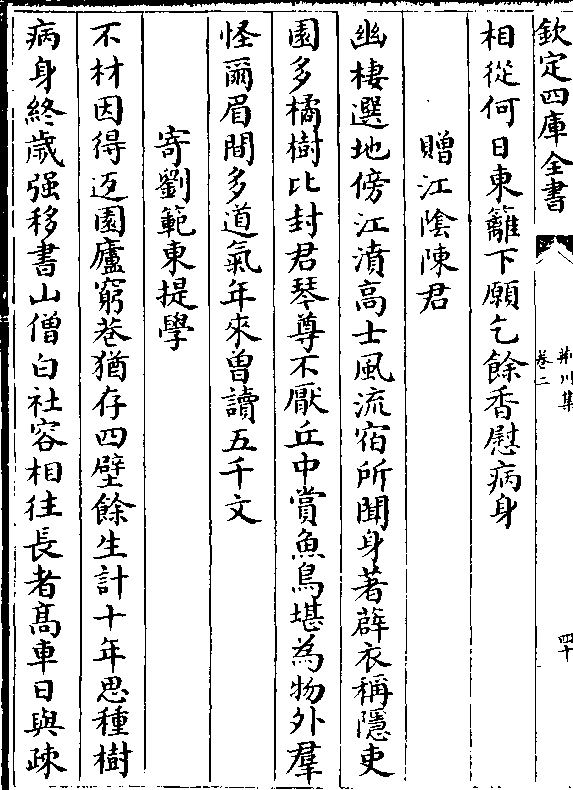 欽定四庫全書
荆川集
卷二
四十
相從何日東籬下願乞餘香慰病身
贈江陰陳君
幽棲選地傍江濆高士風流宿所聞身著薜衣稱隱吏
園多橘樹比封君琴尊不厭丘中賞魚鳥堪為物外羣
怪爾眉間多道氣年來曾讀五千文
寄劉範東提學
不材因得返園廬窮巷猶存四壁餘生計十年思種樹
病身終歲强移書山僧白社容相往長者髙車日與疎